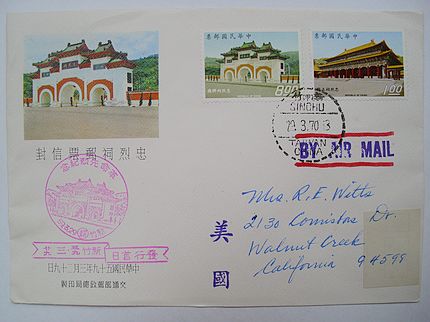 中華民國郵票
中華民國郵票
8.00
1.00
SINCHU
29.3.70
TAIWAN
CHINA
BY AIR MAIL
忠烈祠郵票信封
美國
Mrs. R. E. Witts
2130 Comistas Dr.
Walnut Creek
California 94598
發行首日
中華民國五十九年三月二十九日
交通部郵政總局印製